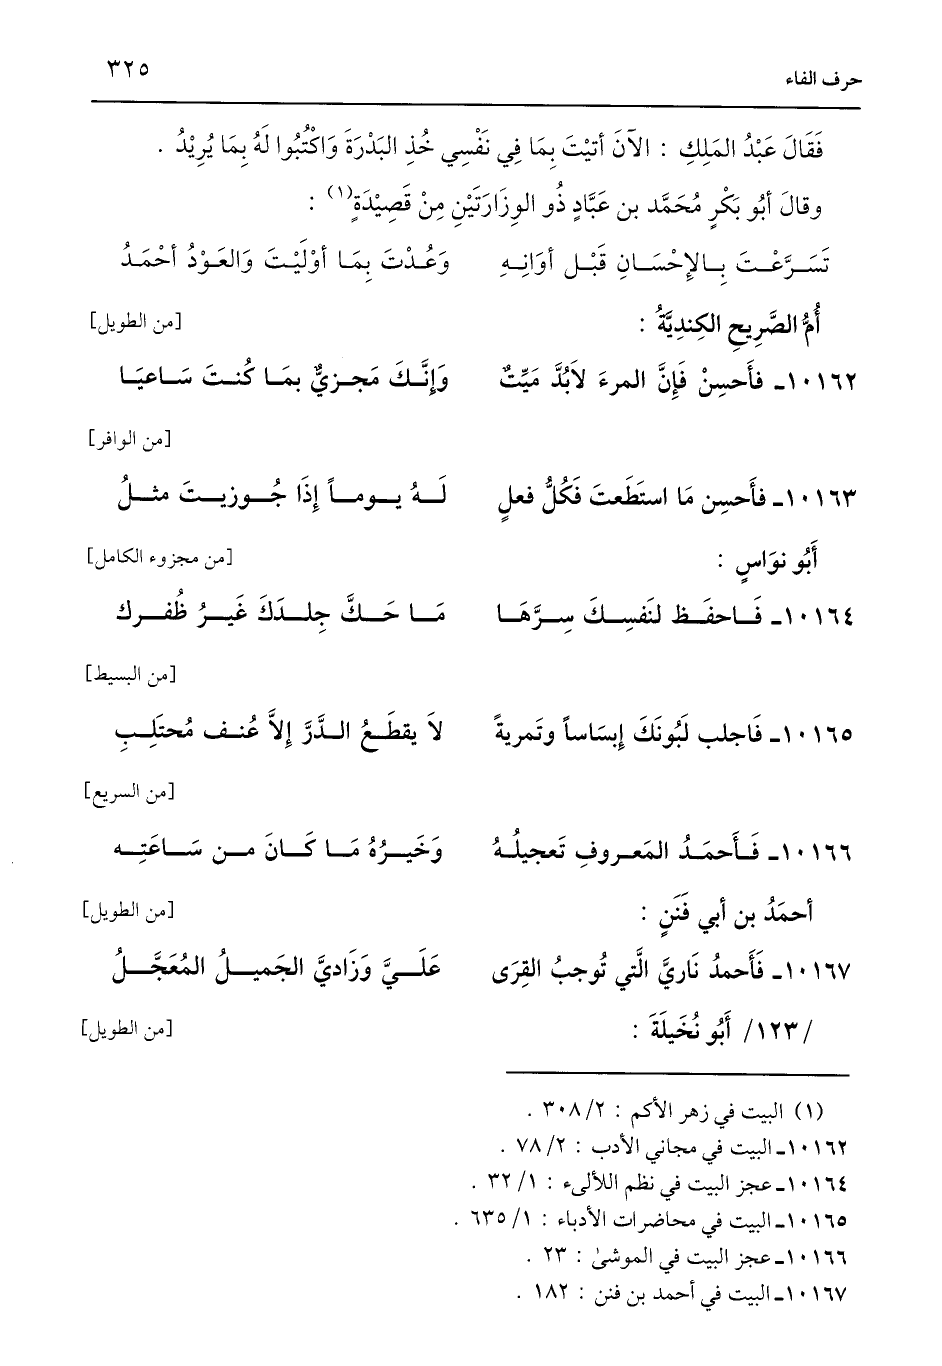 حرف الفاء ٣٢٥
فَقَالَ عَبْدُ المَلِكِ : الآنَ أتَيْتَ بِمَا فِي نَفْسِي خُذِ البَدْرَةَ وَاكْتُبُوا لَهُ بِمَا يُرِيْدُ .
وقالَ أبُو بَكْرٍ مُحَمَّد بن عَبَّادٍ ذُو الوِزَارَتَيْنِ مِنْ قَصِيْدَةٍ(١) :
تَسَرَّعْتَ بِالإِحْسَانِ قَبْلَ أوَانِهِ وَعُدْتَ بِمَا أوْلَيْتَ وَالعَوْدُ أحْمَدُ
أُمُّ الصَّرِيحِ الكِنِديَّةُ : [من الطويل]
١٠١٦٢ـ فأَحسِنْ فَإِنَّ المرءَ لاَبُدَّ مَيِّتٌ وَإِنَّكَ مَجزيٌّ بمَا كُنتَ سَاعيَا
[من الوافر]
١٠١٦٣ـ فأَحسِن مَا استَطَعتَ فَكُلُّ فعلٍ لَهُ يوماً إِذَا جُوزيتَ مثلُ
أَبُو نوَاسٍ : [من مجزوء الكامل]
١٠١٦٤ـ فَاحفَظ لنَفسِكَ سِرَّهَا مَا حَكَّ جِلدَكَ غَيرُ ظُفرك
[من البسيط]
١٠١٦٥ـ فَاجلب لَبُونَكَ إبسَاساً وتَمريةً لاَ يقطَعُ الدَّرَّ إلاَّ عُنف مُحتَلِبِ
[من السريع]
١٠١٦٦ـ فَأَحمَدُ المَعروفِ تَعجيلُهُ وَخَيرُهُ مَا كَانَ من سَاعَتِه
أحمَدُ بن أبي فَنَنٍ : [من الطويل]
١٠١٦٧ـ فَأَحمدُ نَاريَّ الَّتي تُوجبُ القِرَى عَلَيَّ وَزَاديَّ الجَميلُ المُعَجَّلُ
/١٢٣/ أَبُو نُخَيلَةَ : [من الطويل]
(١) البيت في زهر الأكم : ٣٠٨/٢ .
١٠١٦٢ـ البيت في مجاني الأدب : ٧٨/٢ .
١٠١٦٤ـ عجز البيت في نظم اللآلىء : ٣٢/١ .
١٠١٦٥ـ البيت في محاضرات الأدباء : ٦٣٥/١ .
١٠١٦٦ـ عجز البيت في الموشىٰ : ٢٣ .
١٠١٦٧ـ البيت في أحمد بن فنن : ١٨٢ .